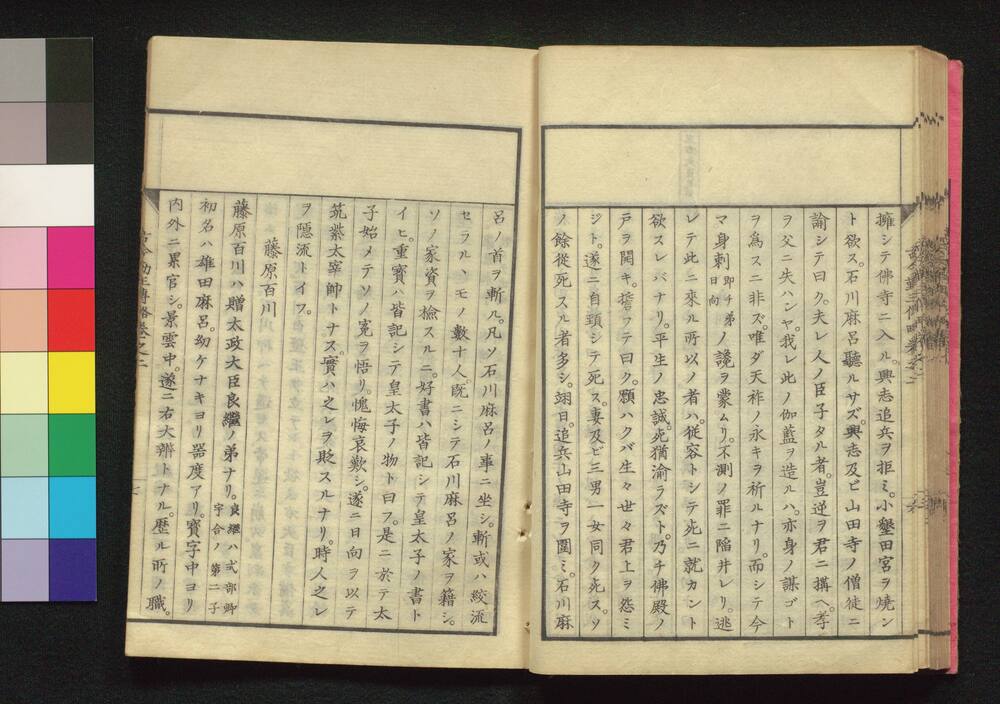 擁シテ佛寺ニ入ル。興志追兵ヲ拒ミ。小墾田宮ヲ燒ン
ト欲ス。石川麻呂聽ルサズ。興志及ビ山田寺ノ僧徒ニ
諭シテ曰ク。夫レ人ノ臣子タル者。豈逆ヲ君ニ搆ヘ。孝
ヲ父ニ失ハンヤ。我レ此ノ伽藍ヲ造ルハ。亦身ノ謀ゴト
ヲ爲スニ非ズ。唯ダ天祚ノ永キヲ祈ルナリ。而シテ今
マ身刺 即チ弟日向 ノ讒ヲ蒙ムリ。不測ノ罪ニ陷井レリ。逃
レテ此ニ來ル所以ノ者ハ。從容トシテ死ニ就カント
欲スレバナリ。平生ノ忠誠。死猶渝ラズト。乃チ佛殿ノ
戸ヲ開キ。誓フテ曰ク。願ハクバ生々世々君上ヲ怨ミ
ジト。遂ニ自頸シテ死ス。妻及ビ三男一女同ク死ス。ソ
ノ餘從死スル者多シ。翌日。追兵山田寺ヲ圍ミ。石川麻
呂ノ首ヲ斬ル。凡ソ石川麻呂ノ事ニ坐シ。斬或ハ絞流
セラルヽモノ數十人。既ニシテ石川麻呂ノ家ヲ籍シ。
ソノ家資ヲ檢スルニ。好書ハ皆記シテ皇太子ノ書ト
イヒ。重寳ハ皆記シテ皇太子ノ物ト曰フ。是ニ於テ太
子始メテソノ寃ヲ悟リ。愧悔哀歎シ。遂ニ日向ヲ以テ
筑紫太宰帥トナス。實ハ之レヲ貶スルナリ。時人之レ
ヲ隱流トイフ。
藤原百川
藤原百川ハ贈太政大臣良繼ノ弟ナリ。 良繼ハ式部卿宇合ノ第二子
初名ハ雄田麻呂。幼ケナキヨリ器度アリ。寳字中ヨリ
内外ニ累官シ。景雲中。遂ニ右大辨トナル。歴ル所ノ職。